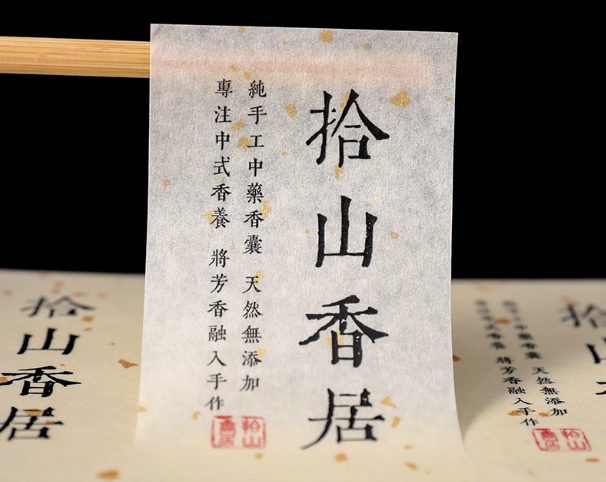 拾山香居
純手工中藥香囊 天然無添加
專注中式香養 將芳香融入手作
拾山
香居
拾山香居
拾山
純手工中藥香囊 天然無添加
專注中式香養 將芳香融入手作
拾山
香居